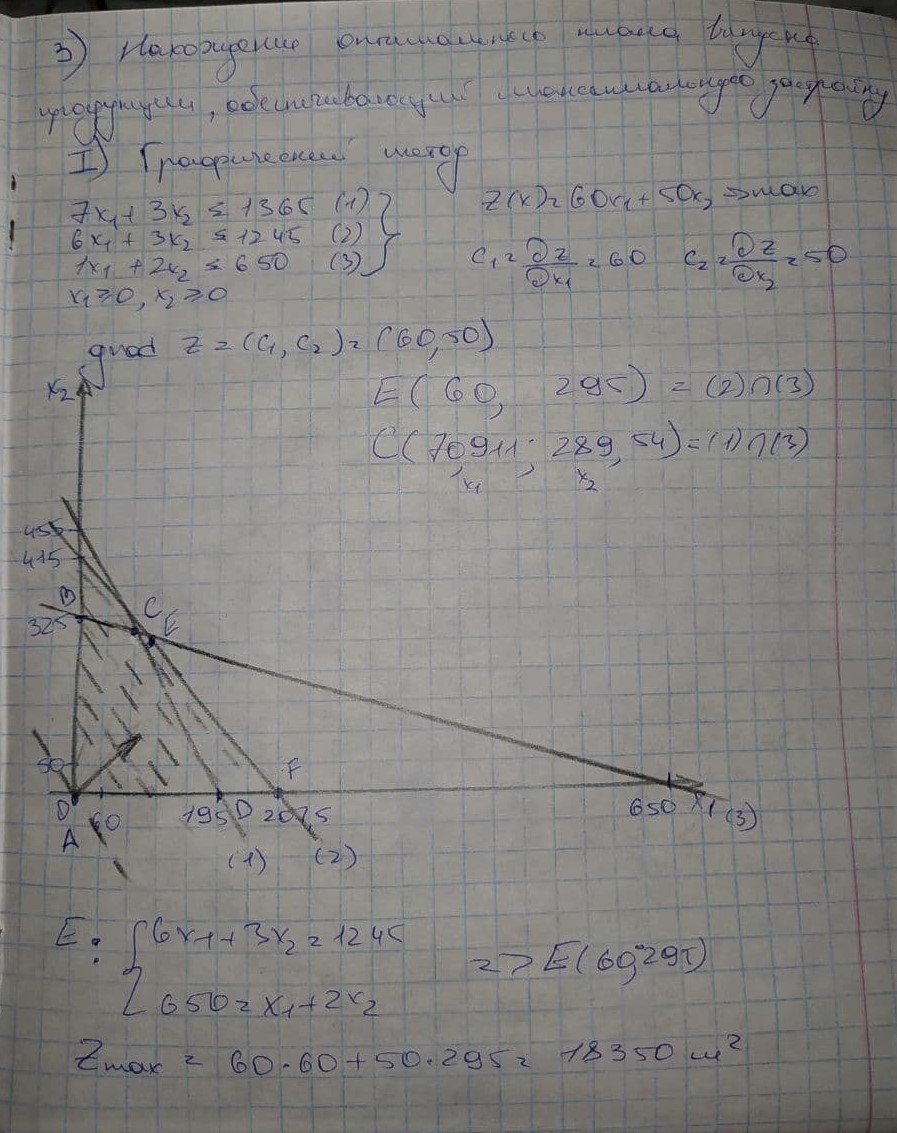 3) Нахождение оптимального плана выпуска
продукции, обеспечивающий максимальную застройку
I) Графический метод
7x₁ + 3x₂ ≤ 1365 (1)
6x₁ + 3x₂ ≤ 1245 (2)
1x₁ + 2x₂ ≤ 650 (3)
x₁ ≥ 0, x₂ ≥ 0
Z(x) = 60x₁ + 50x₂ => max
C₁ = ∂Z/∂x₁ = 60 C₂ = ∂Z/∂x₂ = 50
grad Z = (C₁, C₂) = (60, 50)
E(60, 295) = (2)∩(3)
C(70,911; 289,54) = (1)∩(3)
x₁ x₂
x₂
455
415
B
325
C E
50
F
0 60 195 D 207,5 650 x₁ (3)
A
(1) (2)
E: { 6x₁ + 3x₂ = 1245
650 = x₁ + 2x₂
=> E(60; 295)
Zmax = 60·60 + 50·295 = 18350 м²